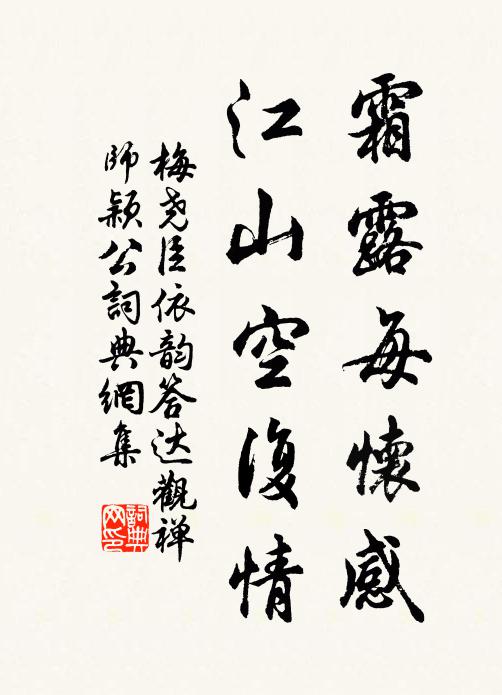 霜露每懷感
江山空復情
梅尧臣依韵答达觀禅
師颖公詞典網集
詞典
网印